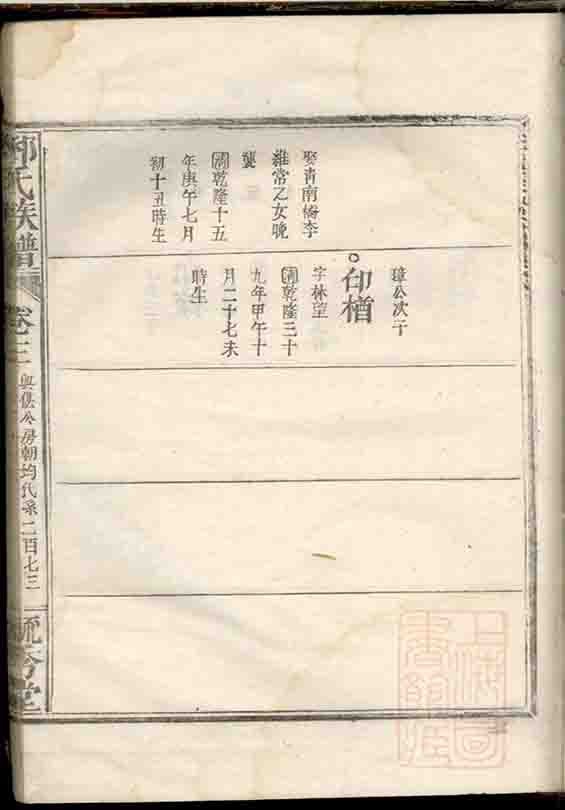 娶青南橋李
維常乙女晚
龔
清乾隆十五
年庚午七月
初十丑時生
璋公次子
印楢
字林望
清乾隆三十
九年甲午十
月二十七未
時生
氏族譜
卷三
與傑公房朝均代系二百七三
毓秀堂
上海圖書館藏